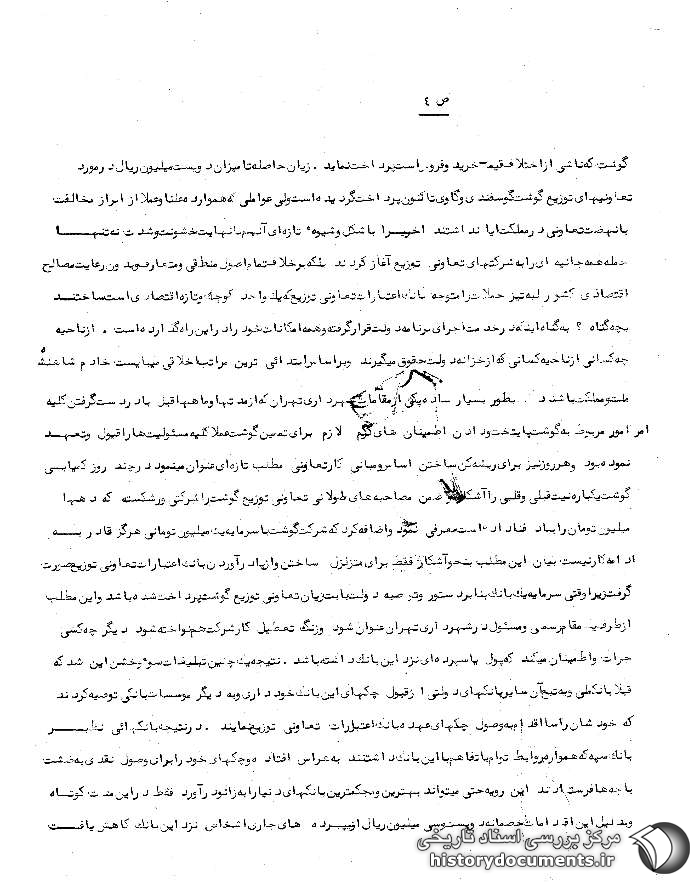 ص ٤
گوشت که ناشی از اختلاف قیمت خرید و فروش است پرداخت نماید . زیان حاصله تا میزان دویست میلیون ریال در مورد
تعاونیهای توزیع گوشت گوسفندی و گاوی تاکنون پرداخت گردیده است ولی عواملی که همواره علنا و عملا از ابراز مخالفت
با نهضت تعاونی در مملکت ابا نداشتند اخیرا با شکل و شیوه تازه‌ای آنهم با نهایت خشونت و شدت نه تنها
حمله همه جانبه ای را به شرکتهای تعاونی توزیع آغاز کردند بلکه بر خلاف تمام اصول منطقی و متعارف و بدون رعایت مصالح
اقتصادی کشور لبه تیز حملات را متوجه بانک اعتبارات تعاونی توزیع که یک واحد کوچک و تازه اقتصادی است ساختند
بچه گناه ؟ به گناه اینکه در خدمت اجرای برنامه دولت قرار گرفته و همه امکانات خود را در این راه گذارده است . از ناحیه
چه کسانی از ناحیه کسانی که از خزانه دولت حقوق میگیرند و بر اساس ابتدائی ترین مراتب اخلاقی میبایست خادم شاهنشاه
ملت و مملکت باشند . بطور بسیار ساده یکی از مقامات شهرداری تهران که از مدتها و ماهها قبل با در دست گرفتن کلیه
امور مربوط به گوشت پایتخت و دادن اطمینان های لازم برای تامین گوشت عملا کلیه مسئولیت ها را قبول و تعهد
نموده بود و هر روز نیز برای ریشه کن ساختن اساس و مبانی کار تعاونی مطلب تازه‌ای عنوان مینمود در چند روز کمیابی
گوشت یکباره نیت قبلی و قلبی را آشکار و ضمن مصاحبه های طولانی تعاونی توزیع گوشت را شرکتی ورشکسته که دهها
میلیون تومان را بباد فنا داده است معرفی نمود و اضافه کرد که شرکت گوشت با سرمایه یک میلیون تومانی هرگز قادر به
ادامه کار نیست بیان این مطلب بنحو آشکار فقط برای متزلزل ساختن و از پا در آوردن بانک اعتبارات تعاونی توزیع صورت
گرفت زیرا وقتی سرمایه یک بانک بنابر دستور و توصیه دولت بابت زیان تعاونی توزیع گوشت پرداخت شده باشد و این مطلب
از طرف یک مقام رسمی و مسئول در شهرداری تهران عنوان شود و زنگ تعطیل کار شرکت هم نواخته شود دیگر چه کسی
جرات و اطمینان میکند که پول یا سپرده‌ای نزد این بانک داشته باشد . نتیجه یک چنین تبلیغات سوء و خشن این شد که
قبلا بانک ملی و به تبع آن سایر بانکهای دولتی از قبول چکهای این بانک خودداری و به دیگر موسسات بانکی توصیه کردند
که خودشان راسا اقدام به وصول چکهای عهده بانک اعتبارات تعاونی توزیع نمایند . در نتیجه بانکهائی نظیر
بانک سپه که همواره روابط توام با تفاهم با این بانک داشتند به هراس افتاده و چکهای خود را برای وصول نقدی به پشت
باجه ها فرستادند این رویه حتی میتواند بهترین و محکمترین بانکهای دنیا را به زانو درآورد فقط در این مدت کوتاه
و بدلیل این اقدامات خصمانه دویست و سی میلیون ریال از سپرده های جاری اشخاص نزد این بانک کاهش یافت
مرکز بررسی اسناد تاریخی
historydocuments.ir